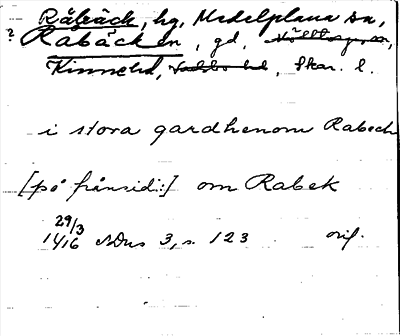 Råbäck, hg, Medelplana sn,
? Rabäcken, gd,
Kinne hd, Skar. l.
i stora gardhenom Rabech
[på frånsid.:] om Rabek
29/3
1416 SDns 3, s. 123 orig.